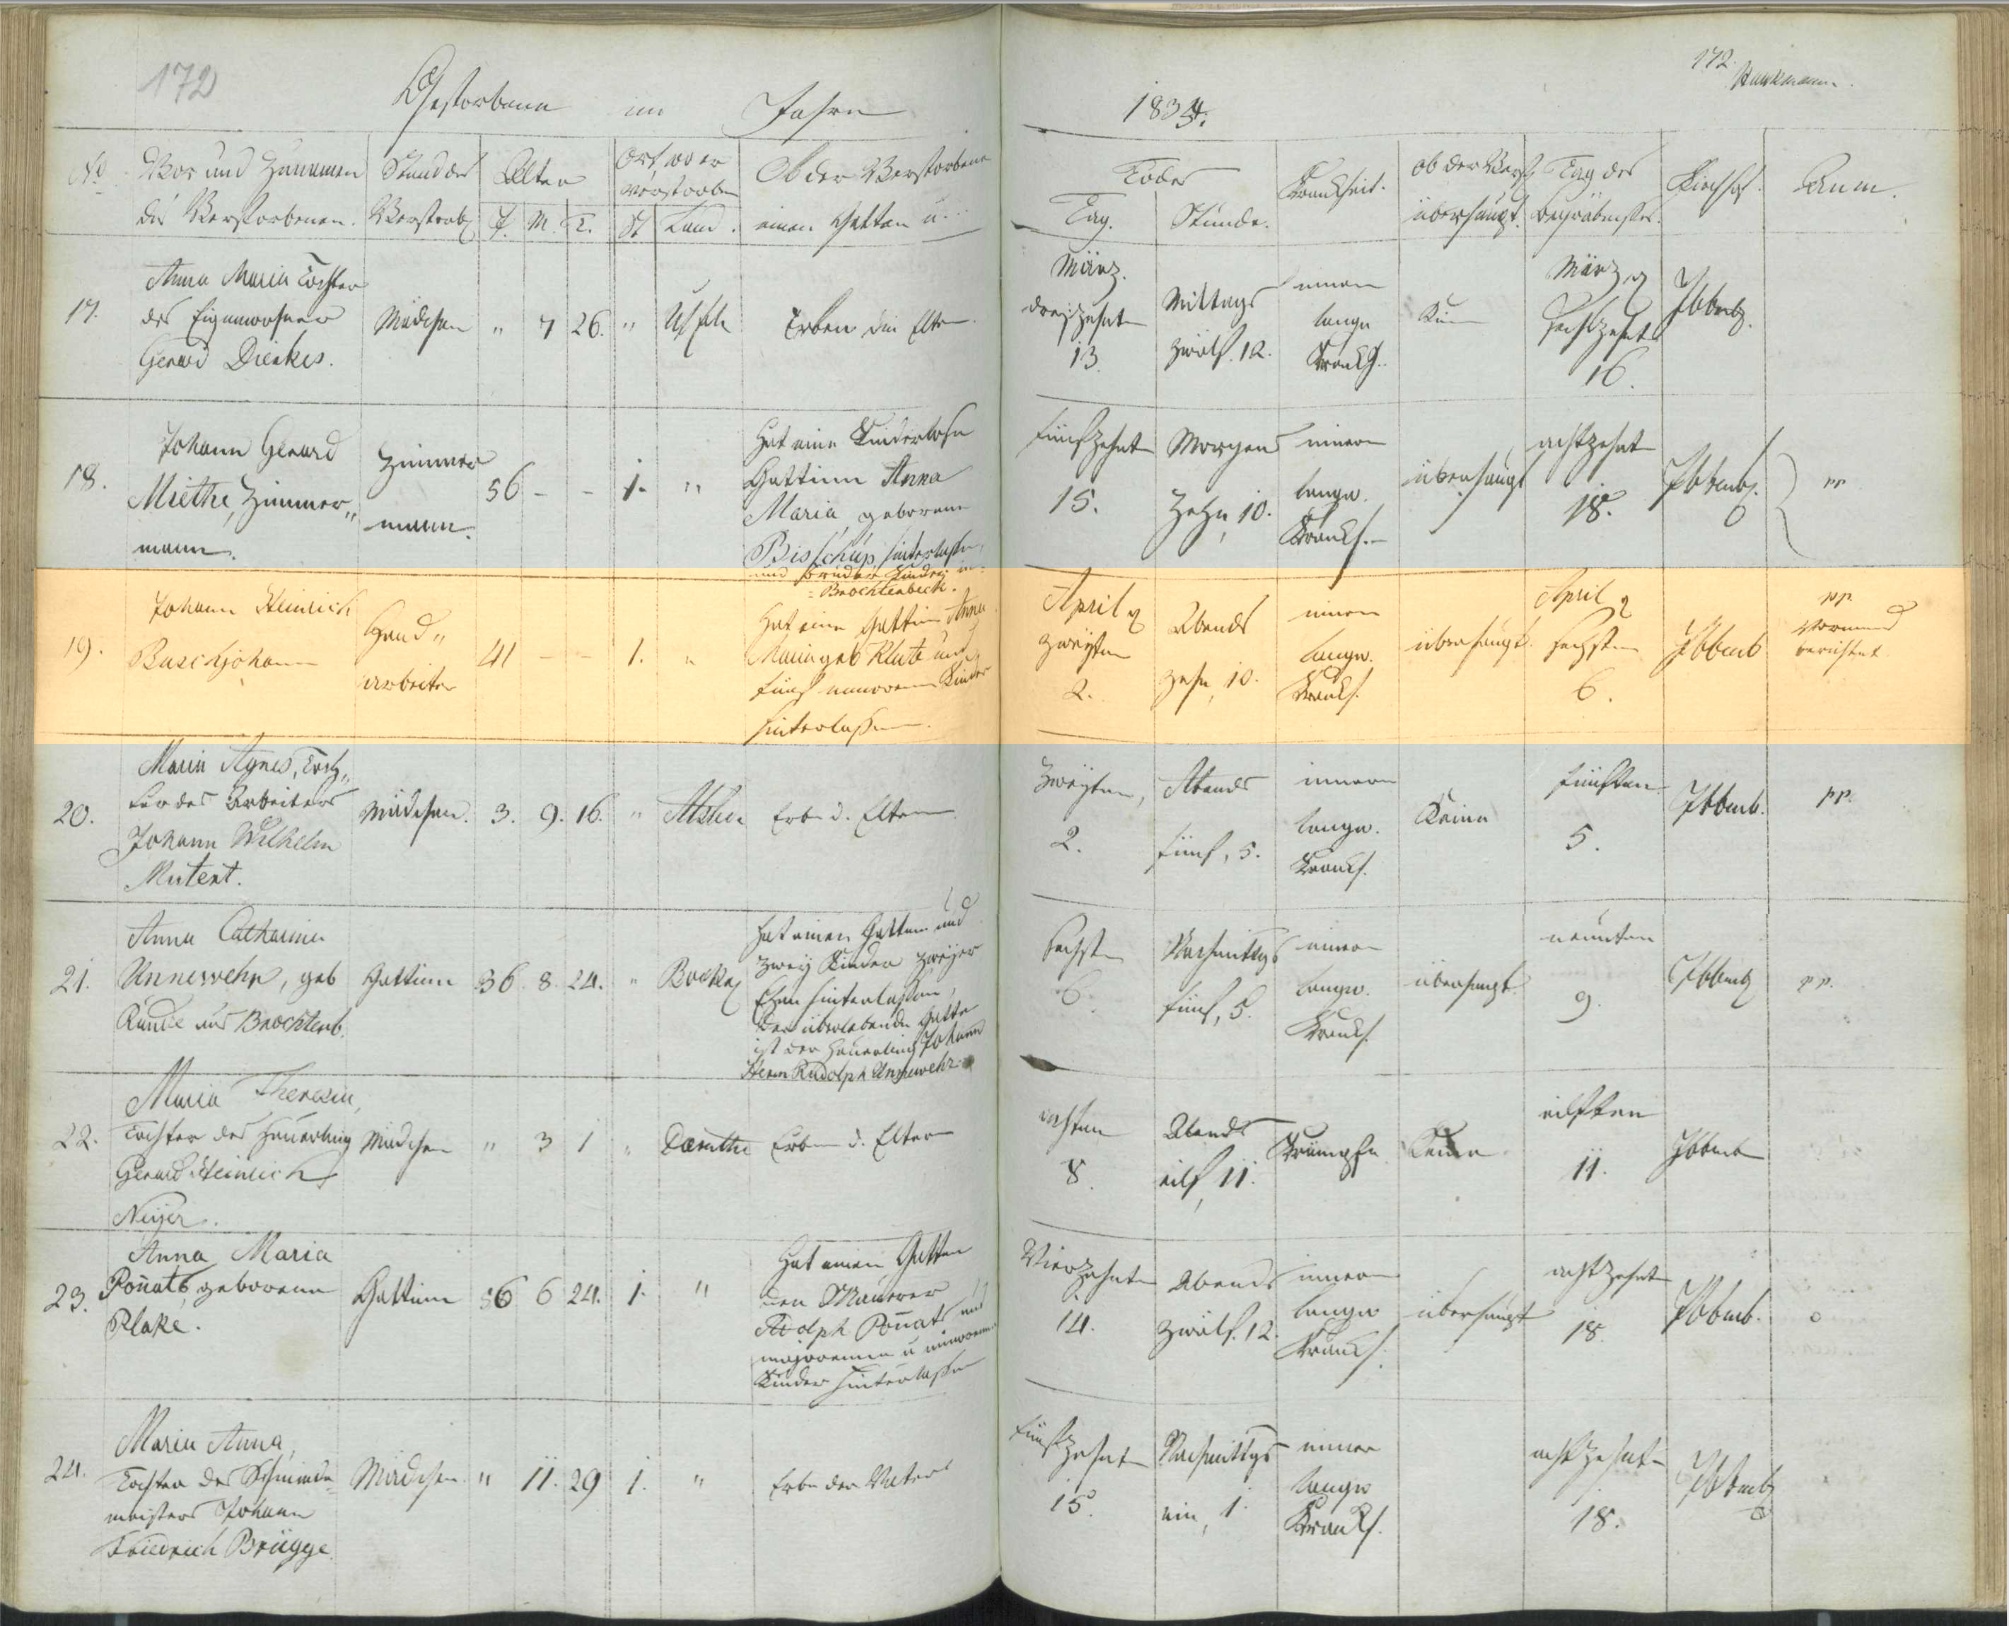 172
172.
Gestorbene im Jahre 1834.
No
Vor und Zunamen
des Verstorbenen.
Stand des
Verstorb.
Alter
J. M. T.
Ort, wo er
verstorben
St Land.
Ob der Verstorbene
einen Gatten u...
Todes
Tag. Stunde.
Krankheit.
ob der Verst.
überhaupt.
Tag des
Begräbnisses.
Kirchhof.
Anm.
17.
Anna Maria Tochter
des Eigenwohner
Gerard Dierkes.
Mädchen
" 7 26.
"
Erben die Eltern.
März.
dreizehnt
13.
Mittags
zwölf. 12.
innere
langw
Krankh.
März
sechszehnt
16.
Ibbenb.
18.
Johann Gerard
Miethe, Zimmer„
mann.
Zimmer
mann.
56 - -
1. "
Hat eine Kinderlose
Gattinn Anna
Maria, geborene
Bisschup hinterlassen,
und Bruders Kinder in
Brochterbeck.
fünfzehnt
15.
Morgens
Zehn, 10.
innere
langw.
Krankh.
überhaupt
achtzehnt
18.
Ibbenb.
"
19.
Johann Heinrich
Buschjohann
Hand„
arbeiter
41 - -
1. "
Hat eine Gattin Anna
Maria geb Klute und
fünf minorenne Kinder
hinterlassen.
April
zweyten
2.
Abends
zehn, 10.
innere
langw.
Krankh.
überhaupt.
April
sechsten
6.
Ibbenb
pp
Vormund
berichtet
20.
Maria Agnes, Toch„
ter des Arbeiters
Johann Wilhelm
Mutert.
Mädchen.
3. 9. 16.
"
Erbe d. Eltern.
Zweyten,
2.
Abends
fünf, 5.
innere
langw.
Krankh.
Keine
fünften
5.
Ibbenb.
pp.
21.
Anna Catharina
Unnewehr, geb
aus Brochterb.
Gattinn
36. 8. 24.
"
hat einen Gatten und
zwey Kinder zweyer
Ehen hinterlassen,
der überlebende Gatte
ist der Heuerling Johann
Herm Rudolph Unnewehr
sechsten
6.
Nachmittags
fünf, 5.
innere
langw.
Krankh.
überhaupt.
neunten
9.
Ibbenb
pp.
22.
Maria Theresia,
Tochter des Heuerling
Gerard Heinrich
Neyer.
Mädchen
" 3 1
"
Erben d. Eltern
achten
8.
Abends
eilf, 11.
Krämpfe
Keine
eilften
11.
Ibbenb
23.
Anna Maria
geborene
Plake.
Gattinn
6 24.
1. "
Hat einen Gatten
den Maurer
Adolph und
majorenne u minorenne
Kinder hinterlassen
Vierzehnt
14.
Abends
zwölf. 12.
innere
langw
Krankh.
überhaupt
achtzehnt
18.
Ibbenb.
24.
Maria Anna,
Tochter des Schmiede„
meisters Johann
Friedrich Brügge.
Mädchen.
" 11. 29
1. "
Erbe der Vater
fünfzehnt
15.
Nachmittags
ein, 1.
innere
langw
Krankh.
achtzehnt
18.
Ibbenb